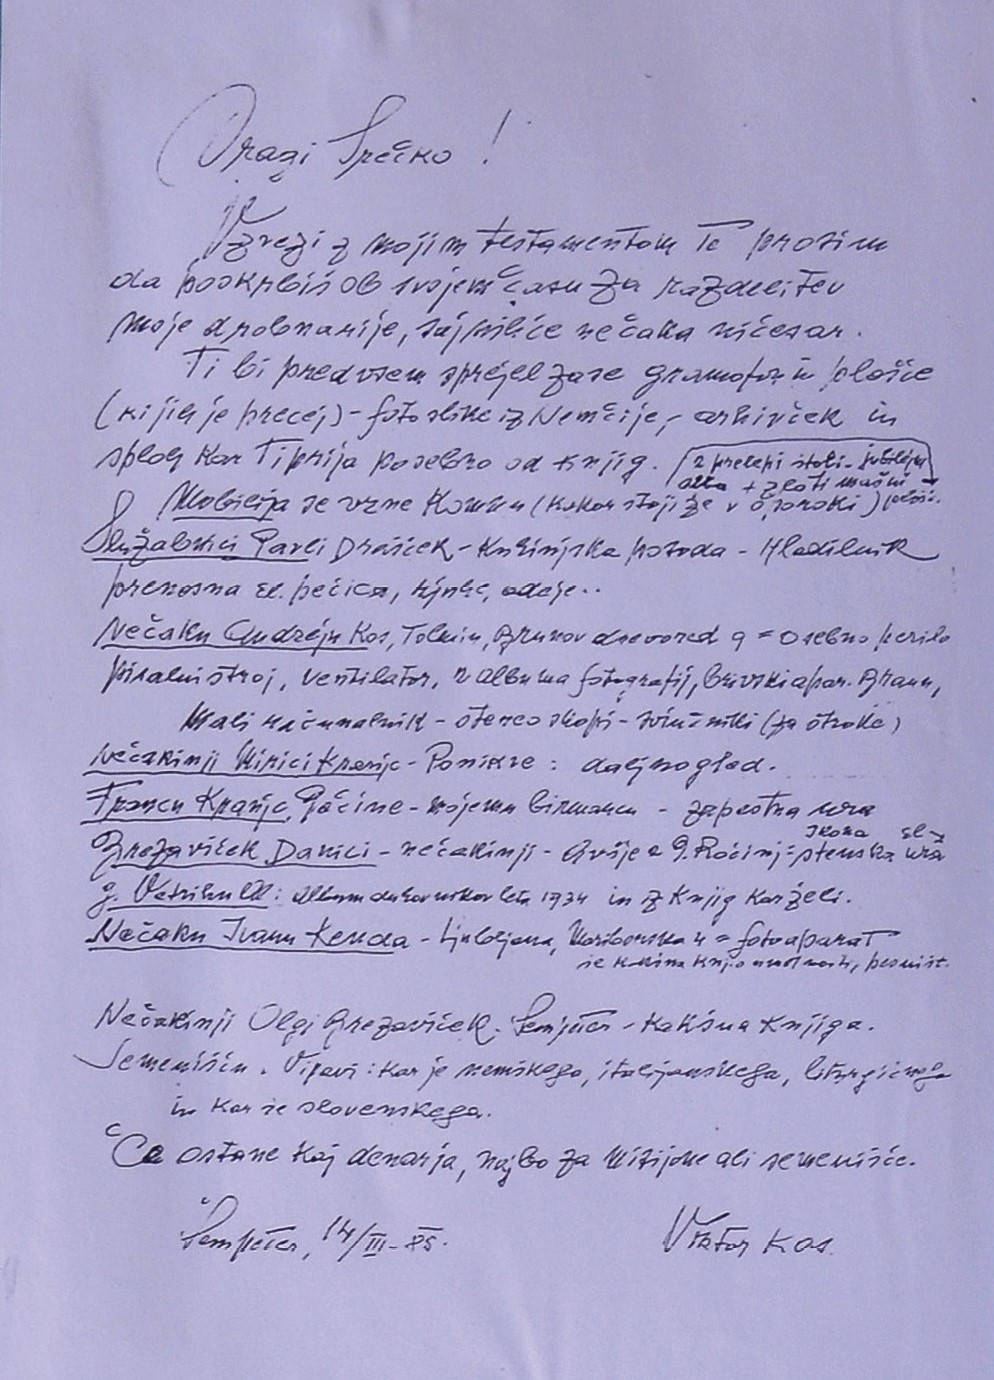 Dragi Srečko!
V zvezi z mojim testamentom Te prosim
da poskrbiš ob svojem času za razdelitev
moje drobnarije, saj nečaka ničesar.
Ti bi predvsem sprejel zase gramofon in plošče
(ki jih je precej) - foto slike iz Nemčije, - arhivček in
sploh kar Ti prija posebno od knjig. (2 prelepi stoli -
+ zlati mašni
Mobilija se vrne Komnu (kakor stoji že v oporoki)
Služabnici Pavli Drašček - kuhinjska posoda - Hladilnik
prenosna el. pečica, rjuhe, odeje..
Nečaku Andreju Kos, Tolmin, Brunov drevored 9 = osebno perilo
pisalni stroj, ventilator, 2 albuma fotografij, brivski apar. Braun,
Mali računalnik - stereoskopi - svinčniki (za otroke)
Nečakinji Mirici Kranjc - Ponikve: daljnogled.
Francu Kranjc, Počine - mojemu birmancu - zapestna ura
Brezavšček Danici - nečakinji - Avšje 2 P. Ročinj: stenska ura
ikona el.
g. Vetrihu M: album duhovnikov leta 1934 in iz knjig kar želi.
Nečaku Ivanu Kenda - Ljubljana, Mariborska 4 = fotoaparat
še kakšna knjiga umetnosti, pesništ.
Nečakinji Olgi Brezavšček. Šempeter - kakšna knjiga.
Semenišču. Vipavi: kar je nemškega, italijanskega, liturgičnega
in kar je slovenskega.
Če ostane kaj denarja, najbo za misijone ali semenišče.
Šempeter, 14/III-85.
Viktor Kos.